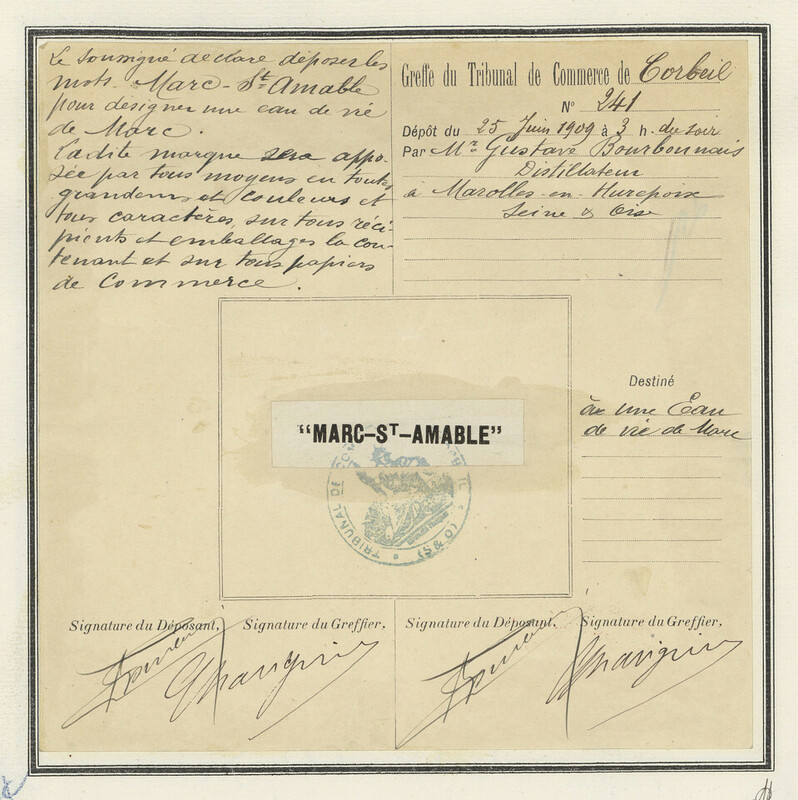 Le Soussigné déclare déposer les
mots Marc-St-Amable
pour désigner une eau de vie
de Marc.
La dite marque sera appo-
sée par tous moyens en toutes
grandeurs et couleurs et
tous caractères, sur tous réci-
pients et emballages la con-
tenant et sur tous papiers
de Commerce.
Greffe du Tribunal de Commerce de Corbeil
N° 241
Dépôt du 25 Juin 1909 à 3 h. du soir
Par Mr Gustave Bourbonnais
Distillateur
à Marolles-en-Hurepoix
Seine & Oise
Destiné
à une Eau
de vie de Marc
"MARC-ST-AMABLE"
TRIBUNAL DE (S&O)
Signature du Déposant, Signature du Greffier,
Signature du Déposant, Signature du Greffier,